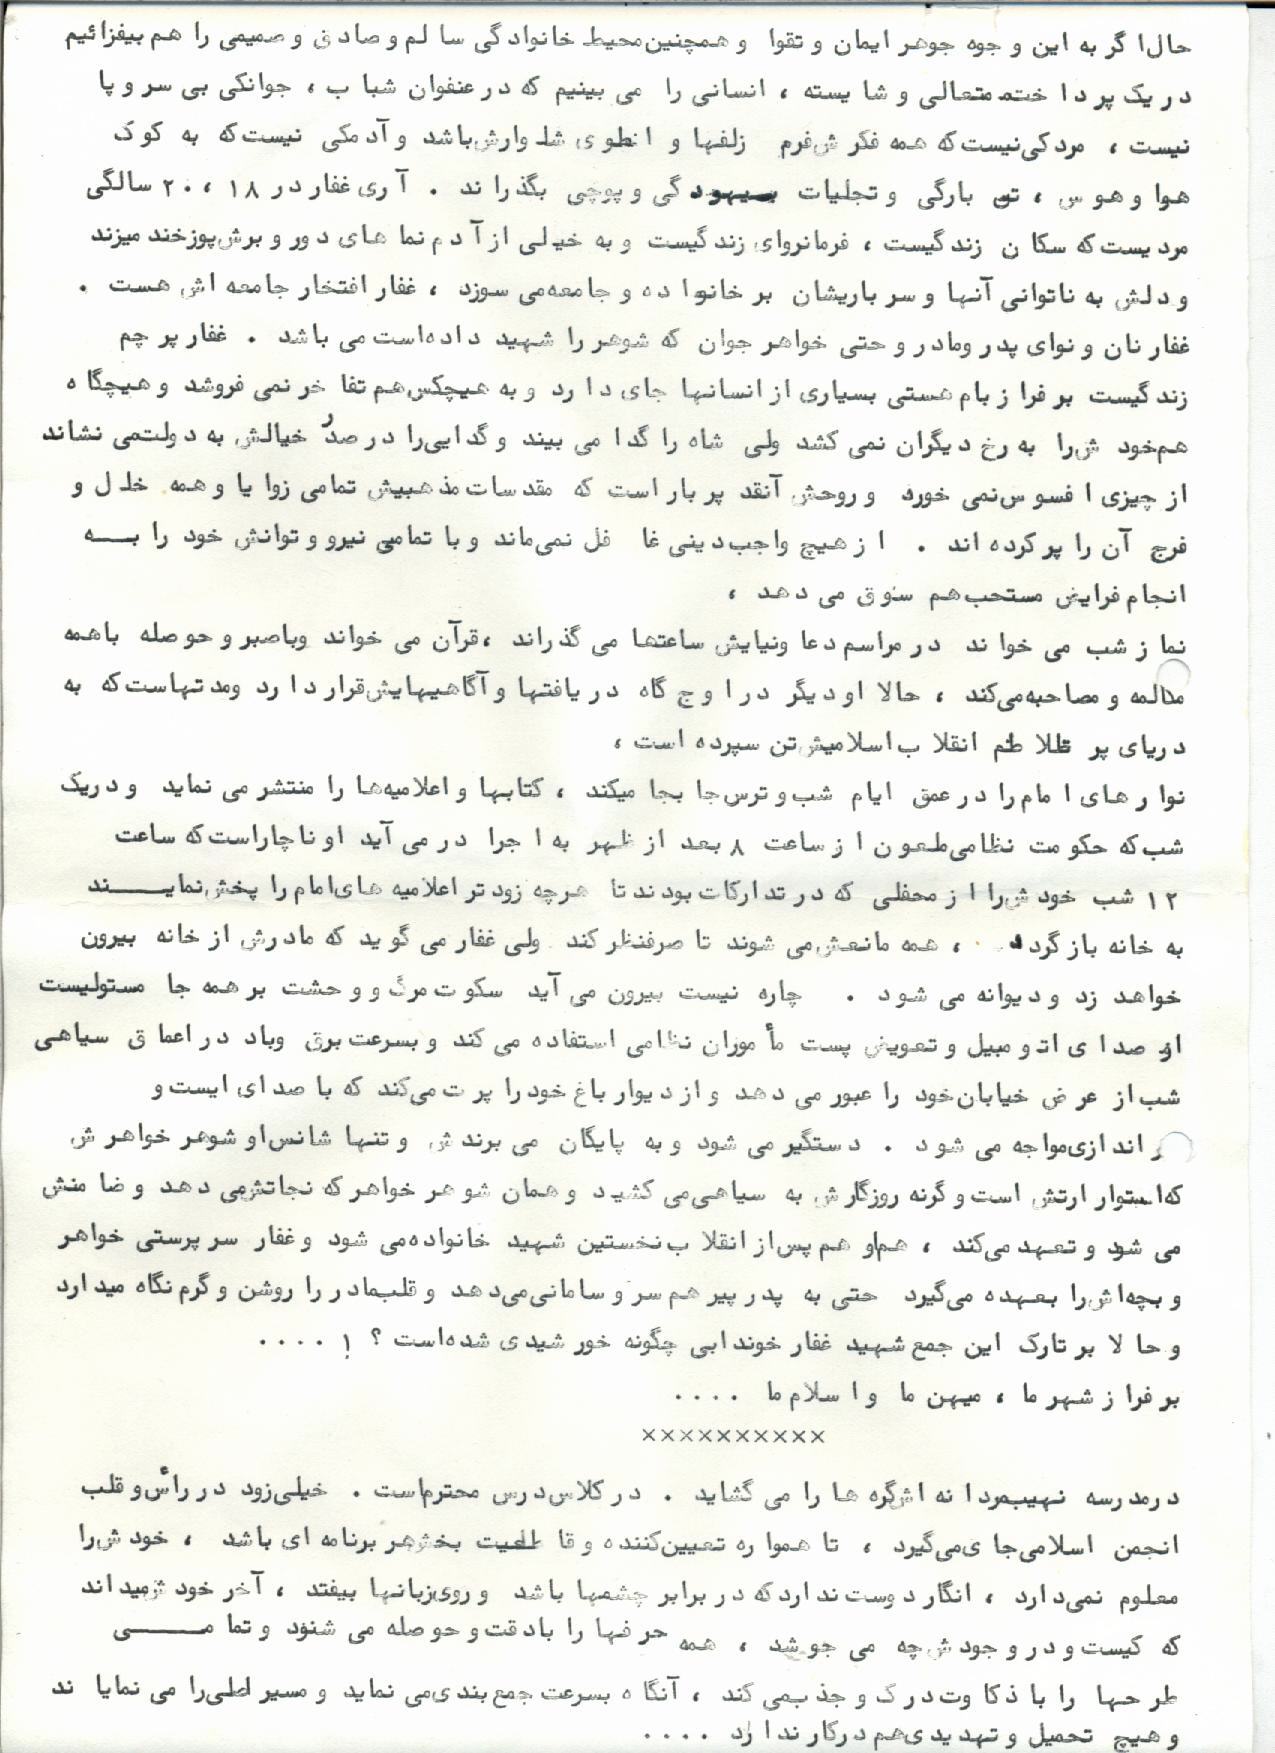 حال اگر به این وجوه جوهر ایمان و تقوا و همچنین محیط خانوادگی سالم و صادق و صمیمی را هم بیفزائیم
در یک پرداخت متعالی و شایسته ، انسانی را می بینیم که در عنفوان شباب ، جوانکی بی سر و پا
نیست ، مردکی نیست که همه فکرش فرم زلفها و اطوی شلوارش باشد و آدمکی نیست که به کوک
هوا و هوس ، تن بارگی و تجلیات بیهودگی و پوچی بگذراند . آری غفار در ۱۸ ، ۲۰ سالگی
مردیست که سکان زندگیست ، فرمانروای زندگیست و به خیلی از آدم نماهای دور و برش پوزخند میزند
و دلش به ناتوانی آنها و سرباریشان بر خانواده و جامعه می سوزد ، غفار افتخار جامعه اش هست .
غفار نان و نوای پدر ومادر و حتی خواهر جوان که شوهر را شهید داده است می باشد . غفار پرچم
زندگیست بر فراز بام هستی بسیاری از انسانها جای دارد و به هیچکس هم تفاخر نمی فروشد و هیچگاه
هم خودش را به رخ دیگران نمی کشد ولی شاه را گدا می بیند و گدایی را در صدر خیالش به دولت نمی نشاند
از چیزی افسوس نمی خورد و روحش آنقد پر بار است که مقدسات مذهبیش تمامی زوایا و همه خلل و
فرج آن را پر کرده اند . از هیچ واجب دینی غافل نمی ماند و با تمامی نیرو و توانش خود را بـــه
انجام فرایض مستحب هم سوق می دهد ،
نماز شب می خواند در مراسم دعا ونیایش ساعتها می گذراند ،قرآن می خواند وباصبر و حوصله باهمه
مکالمه و مصاحبه می کند ، حالا او دیگر در اوج گاه دریافتها و آگاهیهایش قرار دارد ومدتهاست که به
دریای پر تلاطم انقلاب اسلامیش تن سپرده است ،
نوارهای امام را در عمق ایام شب و ترس جا بجا میکند ، کتابها و اعلامیه ها را منتشر می نماید و در یک
شب که حکومت نظامی ملعون از ساعت ۸ بعد از ظهر به اجرا در می آید او ناچار است که ساعت
۱۲ شب خودش را از محفلی که در تدارکات بودند تا هرچه زودتر اعلامیه های امام را پخش نماینـــند
به خانه باز گردد ، همه مانعش می شوند تا صرفنظر کند ولی غفار می گوید که مادرش از خانه بیرون
خواهد زد و دیوانه می شود . چاره نیست بیرون می آید سکوت مرگ و وحشت بر همه جا مستولیست
از صدای اتومبیل و تعویض پست مأموران نظامی استفاده می کند و بسرعت برق وباد در اعماق سیاهی
شب از عرض خیابان خود را عبور می دهد و از دیوار باغ خود را پرت می کند که با صدای ایست و
اندازی مواجه می شود . دستگیر می شود و به پایگان می برندش و تنها شانس او شوهر خواهرش
که استوار ارتش است و گرنه روزگارش به سیاهی می کشید و همان شوهر خواهر که نجاتش می دهد و ضامنش
می شود و تعهد می کند ، هم او هم پس از انقلاب نخستین شهید خانواده می شود و غفار سرپرستی خواهر
و بچه اش را بعهده می گیرد حتی به پدر پیر هم سر و سامانی می دهد و قلب مادر را روشن و گرم نگاه میدارد
و حالا بر تارک این جمع شهید غفار خوندابی چگونه خورشیدی شده است ؟ ! ....
بر فراز شهر ما ، میهن ما و اسلام ما ....
××××××××××
در مدرسه نهیب مردانه اش گره ها را می گشاید . در کلاس درس محترم است . خیلی زود در رأس و قلب
انجمن اسلامی جای می گیرد ، تا همواره تعیین کننده و قاطعیت بخش هر برنامه ای باشد ، خودش را
معلوم نمی دارد ، انگار دوست ندارد که در برابر چشمها باشد و روی زبانها بیفتد ، آخر خودش میداند
که کیست و در وجودش چه می جوشد ، همه حرفها را بادقت و حوصله می شنود و تمامـــی
طرحها را با ذکاوت درک و جذب می کند ، آنگاه بسرعت جمع بندی می نماید و مسیر اصلی را می نمایاند
و هیچ تحمیل و تهدیدی هم در کار ندارد ....